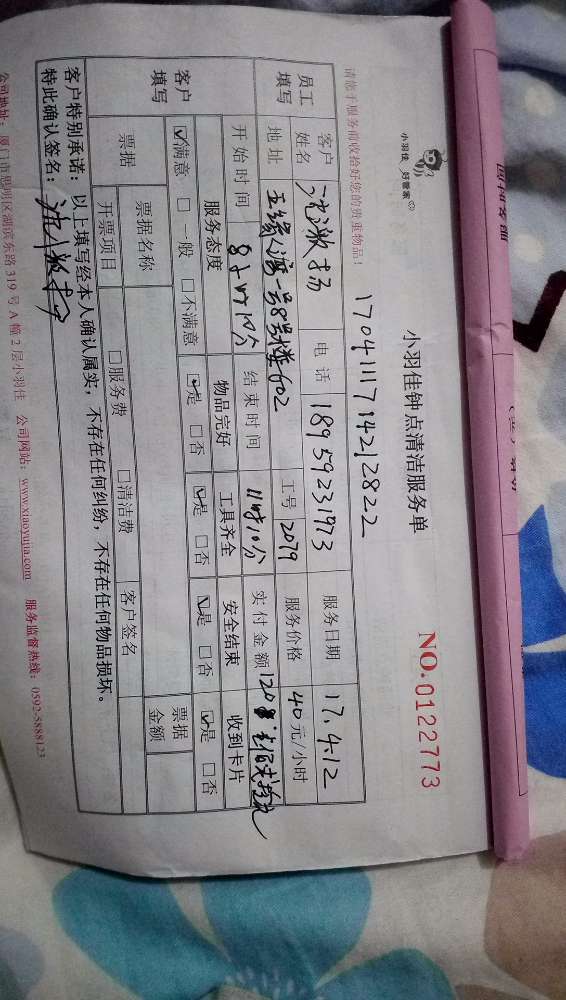 回担客部
小羽佳 好管家
小羽佳钟点清洁服务单
NO.0122773
请您于服务前收拾好您的贵重物品!
1704111714212822
员工填写 客户姓名 沈激扬 电话 18959231973 服务日期 17.4.12
地址 五缘人湾一号8号楼602 工号 2079 服务价格 40元/小时
客户填写 开始时间 8时10分 结束时间 11时10分 实付金额 120
服务态度 物品完好 工具齐全 安全结束 收到卡片
☑满意 □一般 □不满意 ☑是 □否 ☑是 □否 ☑是 □否 ☑是 □否
票据 票据名称 票据金额
开票项目 □服务费 □清洁费 客户签名
客户特别承诺:以上填写经本人确认属实,不存在任何纠纷,不存在任何物品损坏。
特此确认签名:沈激扬
公司地址:厦门市思明区湖滨东路319号A幢2层小羽佳 公司网站:www.xiaoyujia.com 服务监督热线:0592-5888123